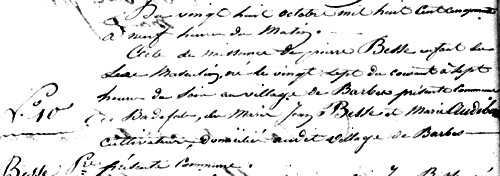 Du vingt huit octobre mil huit Cent cinquante
à neuf heures du Matin.
Acte de naissance de pierre Besse enfant du
Sexe Masculin, né le vingt sept du courant à Sept
heures du Soir au village de Barbas présente Commune
N.o 40
de Badefol, de Marie Jean Besse et Marie Audebert
Cultivateur, domicilié audit village de Barbas
Besse Pre présente Commune.